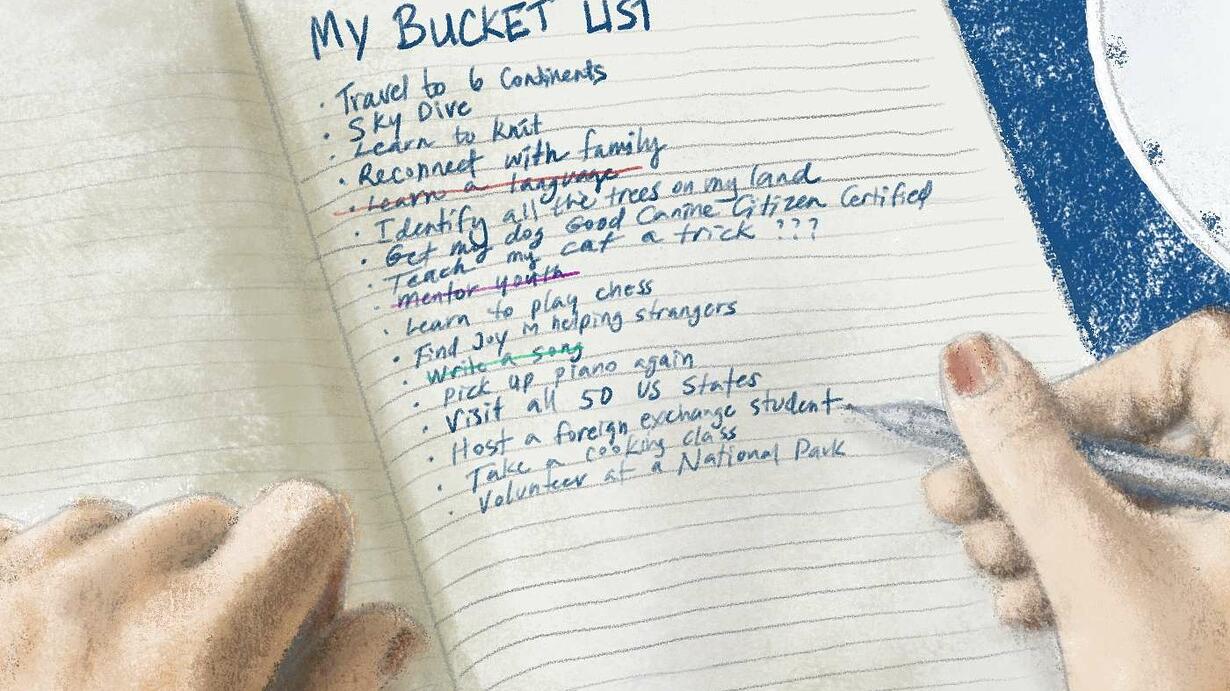 MY BUCKET LIST
· Travel to 6 Continents
· Sky Dive
· Learn to knit
· Reconnect with family
· Learn a language
· Identify all the trees on my land
· Get my dog Good Canine Citizen Certified
· Teach my cat a trick ???
· mentor youth
· Learn to play chess
· Find Joy in helping strangers
· Write a song
· Pick up piano again
· Visit all 50 US States
· Host a foreign exchange student
· Take a cooking class
· Volunteer at a National Park